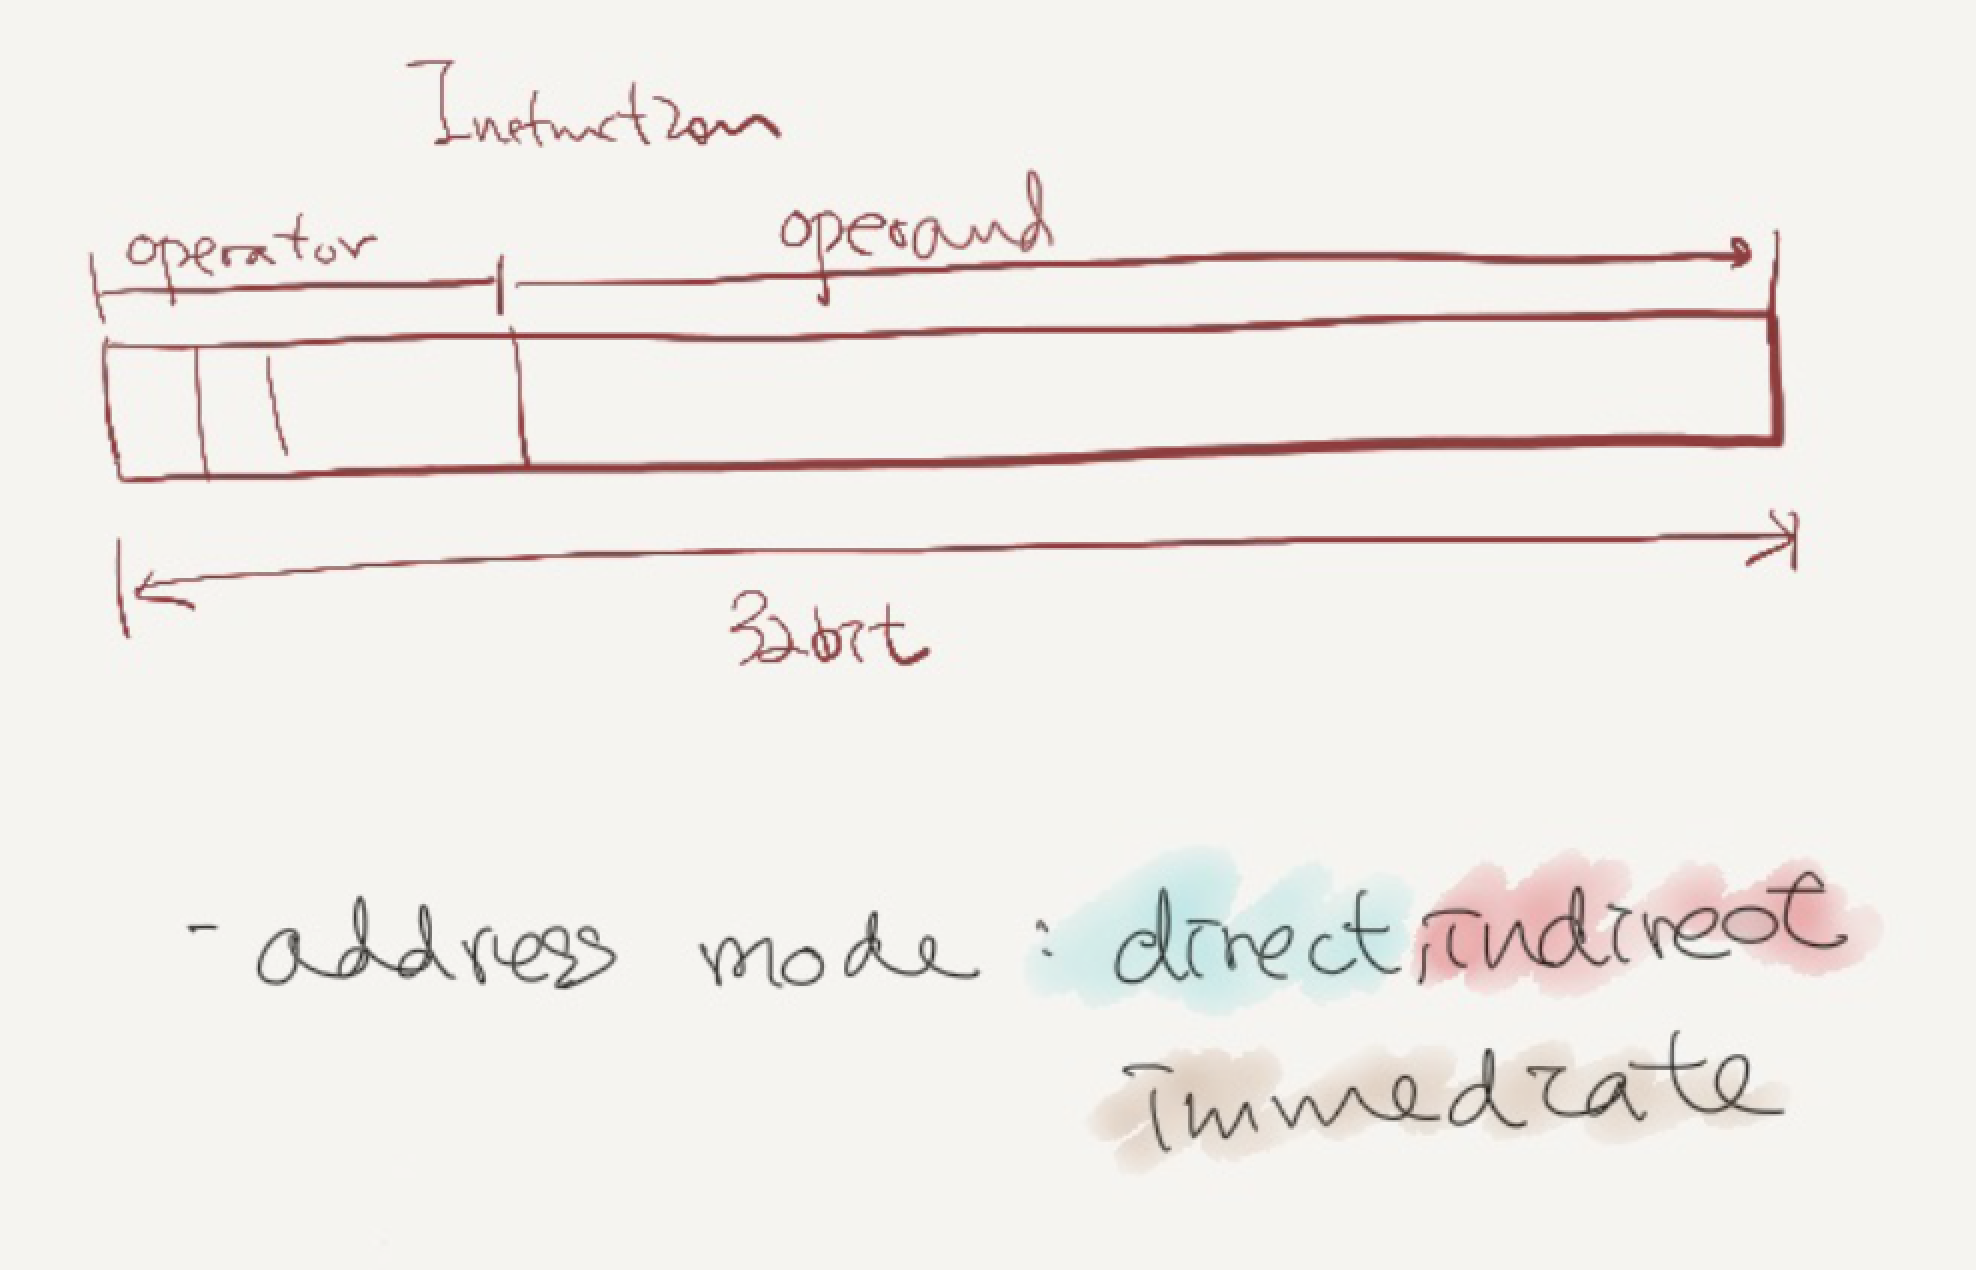 Instruction
operator operand
32bit
- address mode : direct, indirect
immediate